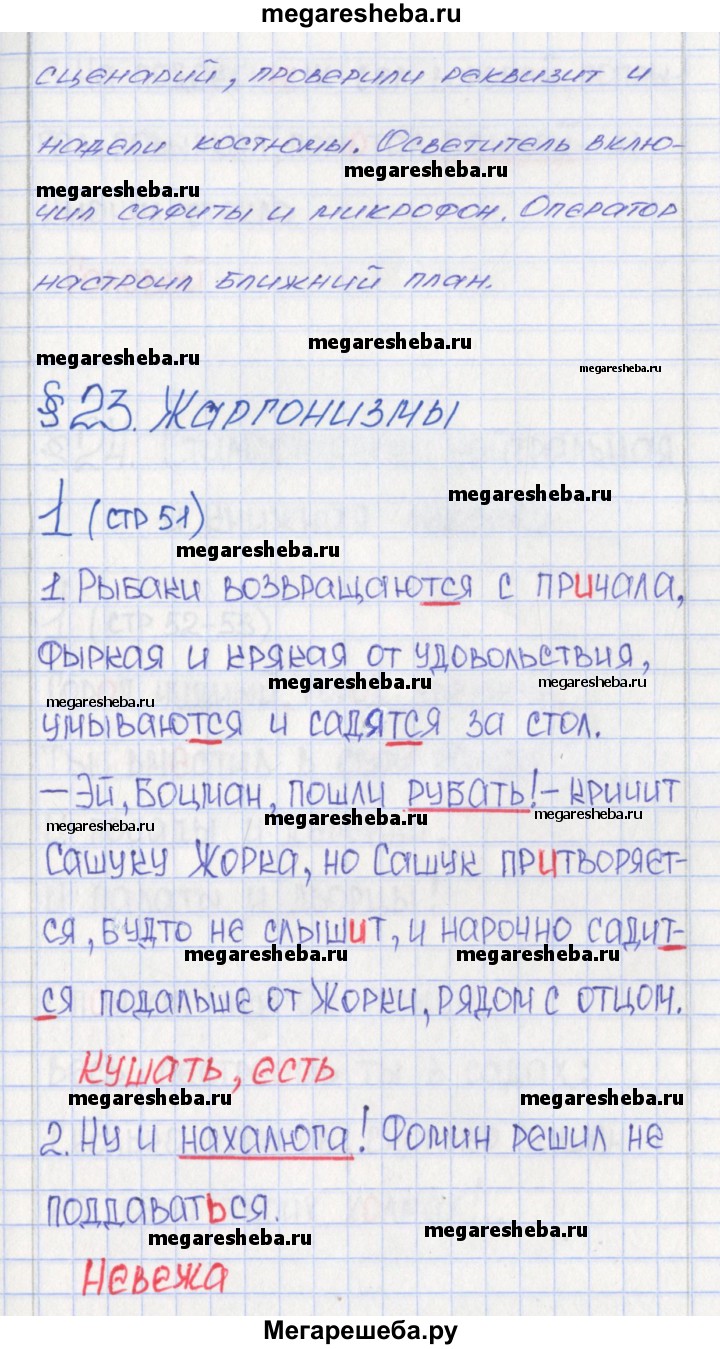 megaresheba.ru
сценарий, проверили реквизит и
надели костюмы. Осветитель вклю-
megaresheba.ru
megaresheba.ru
чил сафиты и микрофон. Оператор
настроил ближний план.
megaresheba.ru
megaresheba.ru
megaresheba.ru
§ 23. Жаргонизмы
megaresheba.ru
1 (стр 51)
megaresheba.ru
1. Рыбаки возвращаются с причала,
фыркая и крякая от удовольствия,
megaresheba.ru
megaresheba.ru
megaresheba.ru
умываются и садятся за стол.
— Эй, Боцман, пошли рубать! – кричит
megaresheba.ru
megaresheba.ru
megaresheba.ru
Сашуку Жорка, но Сашук притворяет-
ся, будто не слышит, и нарочно садит-
megaresheba.ru
megaresheba.ru
ся подальше от Жорки, рядом с отцом.
кушать, есть
megaresheba.ru
megaresheba.ru
2. Ну и нахалюга! Фомин решил не
поддаваться.
megaresheba.ru
megaresheba.ru
Невежа
Мегарешеба.ру